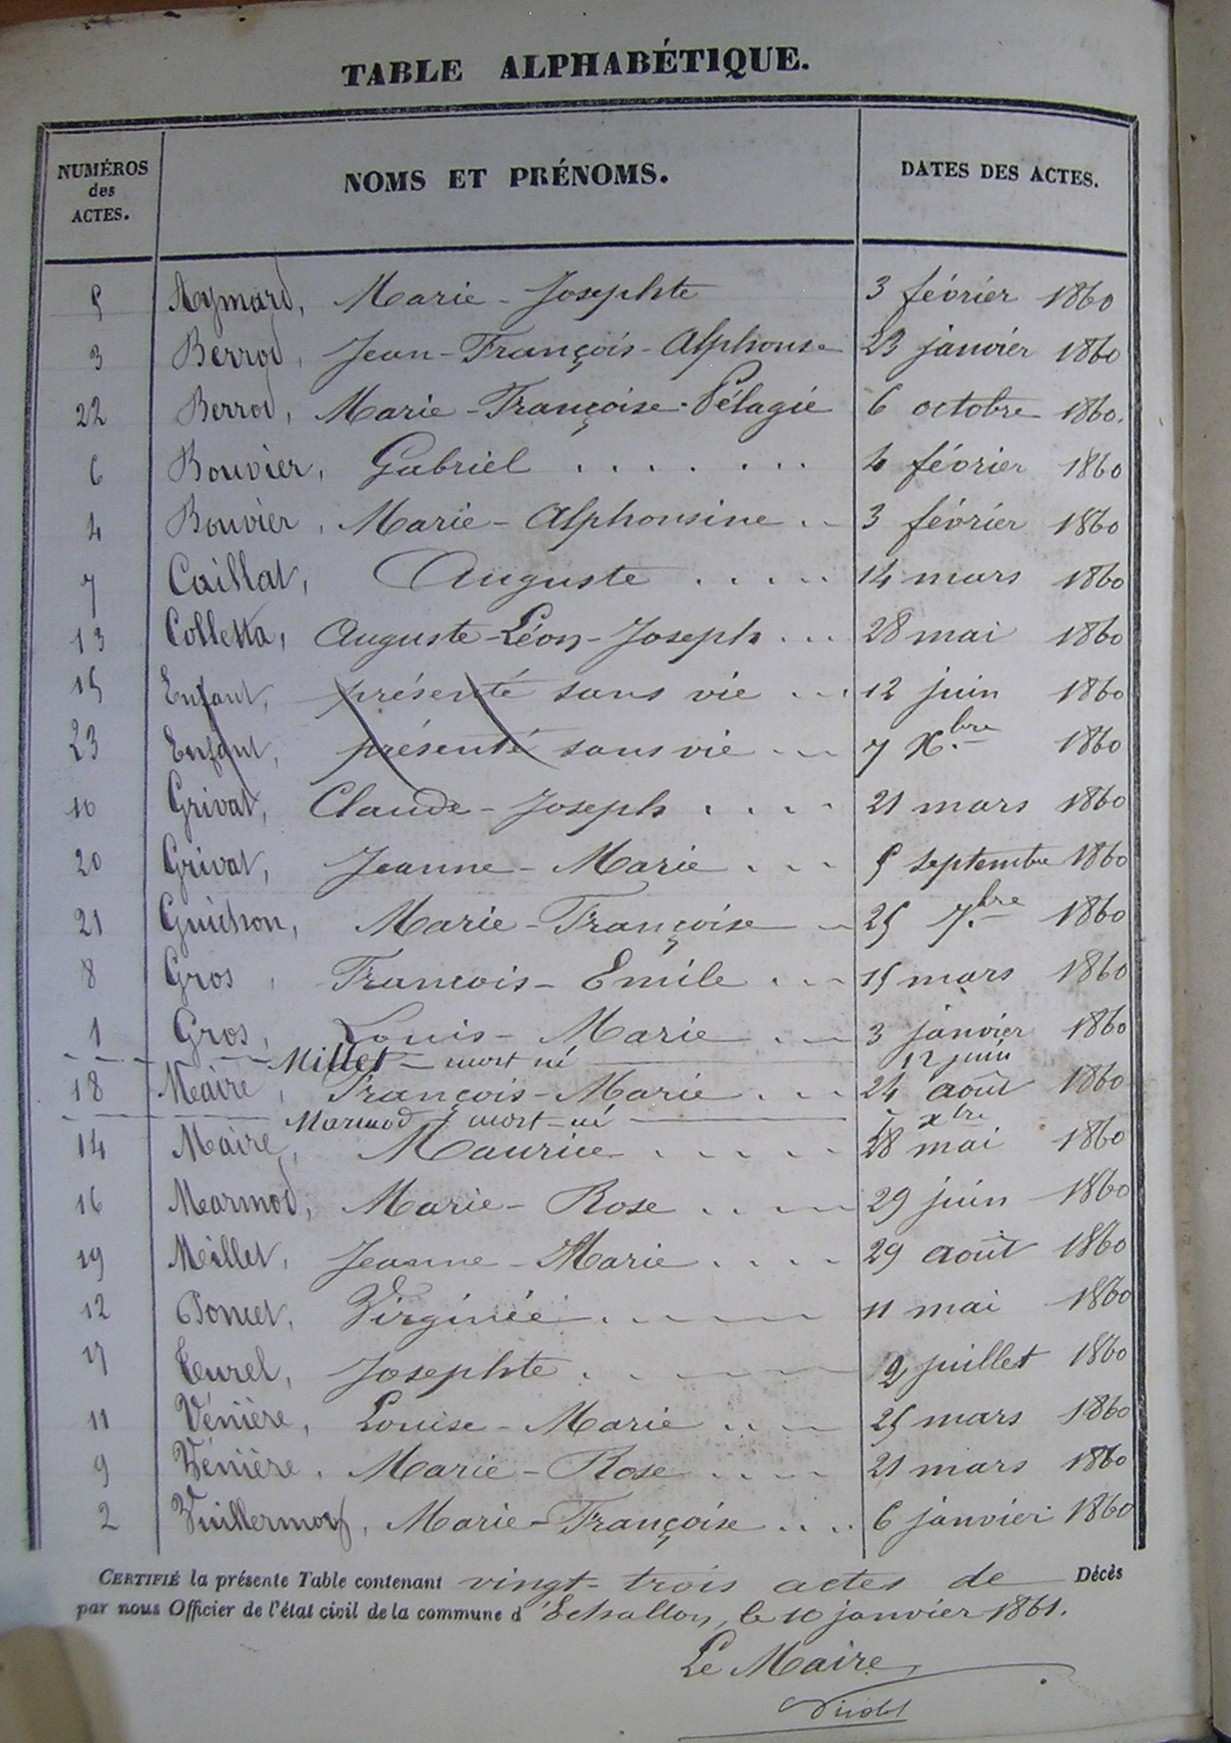 TABLE ALPHABÉTIQUE.
NUMÉROS des ACTES. NOMS ET PRÉNOMS. DATES DES ACTES.
5 Aymard, Marie - Josephte 3 février 1860
3 Berrod, Jean - François - Alphonse 23 janvier 1860
22 Berrod, Marie - Françoise - Pélagie 6 octobre 1860.
6 Bouvier, Gabriel . . . . . . . 4 février 1860
4 Bouvier, Marie - Alphonsine . . 3 février 1860
7 Caillat, Auguste . . . . . 14 mars 1860
13 Colletta, Auguste - Léon - Joseph . . . 28 mai 1860
15 Enfant, présenté sans vie . . . 12 juin 1860
23 Enfant, présenté sans vie . . . 7 X.bre 1860
10 Grivat, Claude - Joseph . . . . 21 mars 1860
20 Grivat, Jeanne - Marie . . . 5 septembre 1860
21 Guichon, Marie - Françoise . . 25 7.bre 1860
8 Gros, Francois - Emile . . . 15 mars 1860
1 Gros, Louis - Marie . . . 3 janvier 1860
Millet - mort né 12 juin
18 Maire, François - Marie . . . 24 août 1860
Marmod - mort-né 7 xbre
14 Maire, Maurice . . . . . 28 mai 1860
16 Marmod, Marie - Rose . . . . 29 juin 1860
19 Millet, Jeanne - Marie . . . . 29 août 1860
12 Poncet, Virginie . . . . . 11 mai 1860
17 Turel, Josephte . . . . . 2 juillet 1860
11 Vénière, Louise - Marie . . . 25 mars 1860
9 Vénière, Marie - Rose . . . . 21 mars 1860
2 Vuillermoz, Marie - Françoise . . . . 6 janvier 1860
CERTIFIÉ la présente Table contenant vingt-trois actes de Décès
par nous Officier de l'état civil de la commune d'Echallon, le 10 janvier 1861.
Le Maire